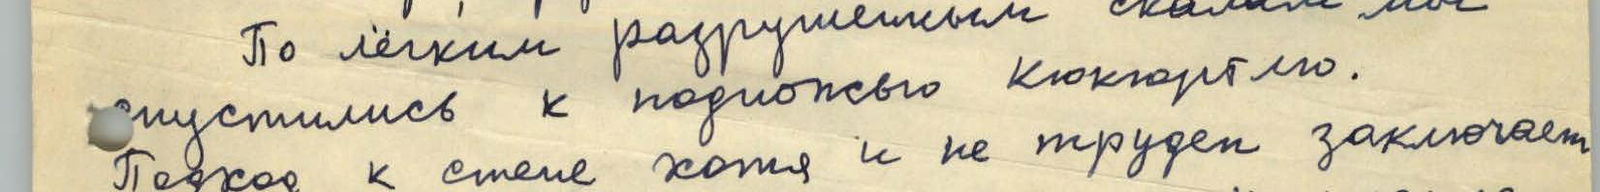 По лёгким разрушенным скалам мы
спустились к подножью Кюкюртлю.
Подход к стене хотя и не труден заключает